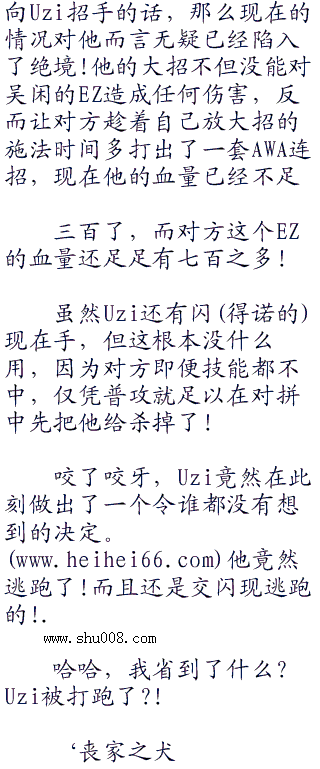 向Uzi招手的话，那么现在的
情况对他而言无疑已经陷入
了绝境!他的大招不但没能对
吴闲的EZ造成任何伤害，反
而让对方趁着自己放大招的
施法时间多打出了一套AWA连
招，现在他的血量已经不足
三百了，而对方这个EZ
的血量还足足有七百之多!
虽然Uzi还有闪(得诺的)
现在手，但这根本没什么
用，因为对方即便技能都不
中，仅凭普攻就足以在对拼
中先把他给杀掉了!
咬了咬牙，Uzi竟然在此
刻做出了一个令谁都没有想
到的决定。
(www.heihei66.com)他竟然
逃跑了!而且还是交闪现逃跑
的!.
www.shu008.com
哈哈，我省到了什么?
Uzi被打跑了?!
‘丧家之犬